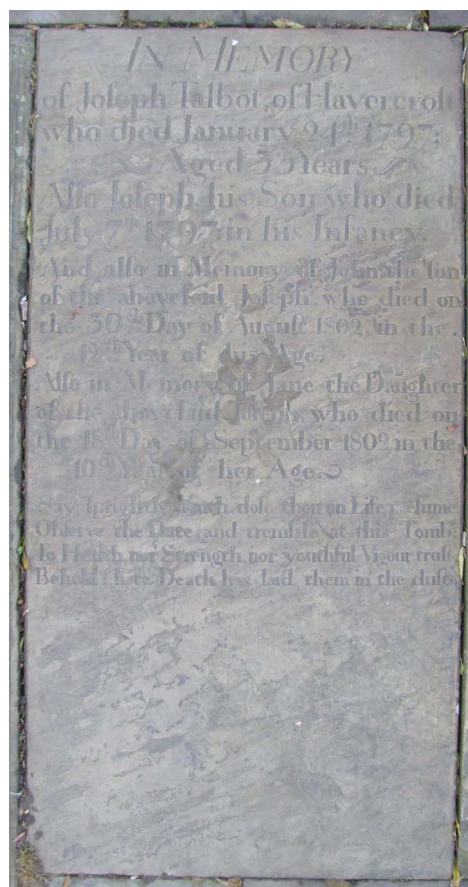 IN MEMORY
of Joſeph Talbot, of Havercroft
who died January 24th 1797;
Aged 33 Years
Alſo Joſeph his Son who died
July 7th 1797 in his Infancy.
And alſo in Memory of John the ſon
of the aboveſaid Joſeph who died on
the 30th Day of Auguſt 1802, in the
12th Year of his Age.
Alſo in Memory of Jane the Daughter
of the aboveſaid Joſeph who died on
the 18th Day of September 1802 in the
10th Year of her Age
Say ſprightly Youth doſt thou on Life preſume
Obſerve the Date and tremble at this Tomb,
To Health nor Strength nor youthful Vigour truſt
Behold here Death has laid them in the duſt